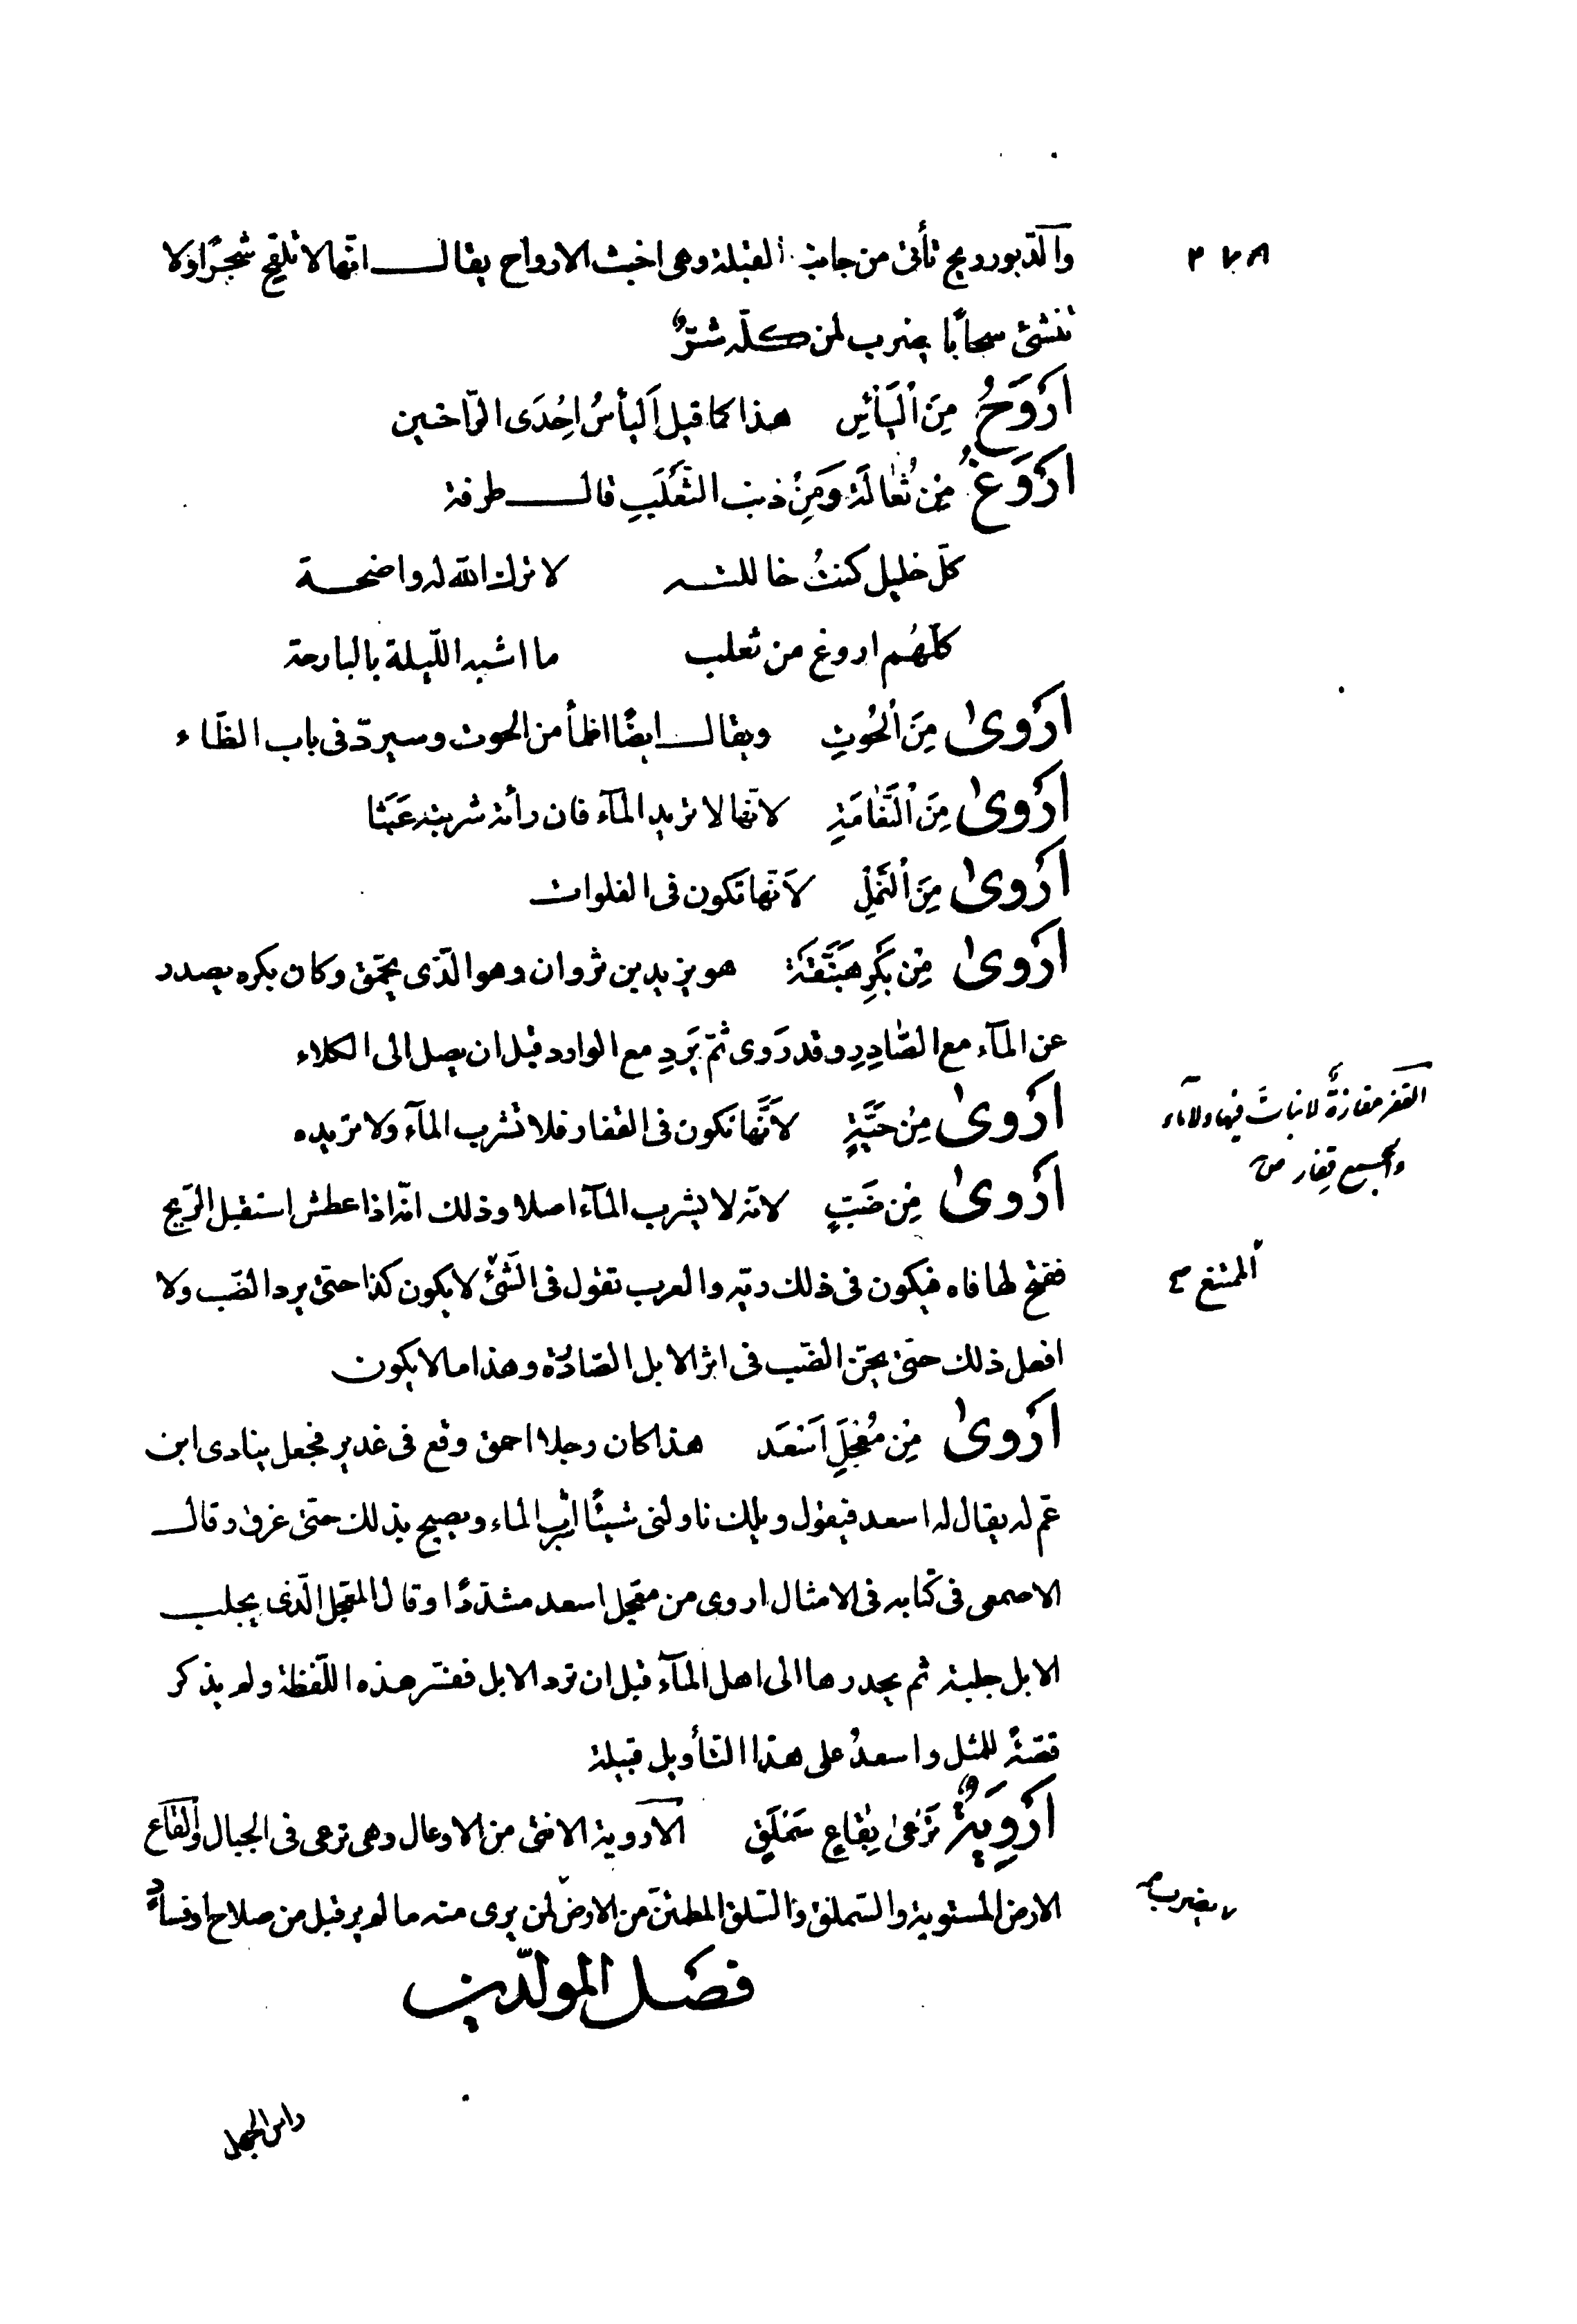 ٣٧٨
والدّبور ريح تأتى من جانب القبلة وهى اخبث الارواح يقال انّها لا تلقح شجرًا ولا
تنشئ سحابًا يضرب لمن كلّه شرٌّ
اَرْوَحُ مِنَ اْليَأْسِ هذا كما قيل اَليأسُ اِحْدَى الرّاحتين
اَرْوَغُ مِنْ ثُعٰالَةَ وَمِنْ ذنب الثَّعْلَبِ قال طرفة
كلّ خليل كنتُ خاللته لا ترك الله له واضحة
كلّهُم اروغ من ثعلب ما اشبه اللّيلة بالبارحة
اَرْوىٰ مِنَ اْلحُوتِ ويقال ايضًا اظمأ من الحوت وسيردّ فى باب الظّاء
اَرْوىٰ مِنَ اْلنَّعٰامَةِ لانّها لا تريد المآء فان رأته شربته عَبَثا
اَرْوىٰ مِنَ اْلنَّمْلِ لاَنّها تكون فى الفلوات
اَرْوىٰ مِنْ بَكْرِ هَبَنَّقَةَ هو يزيد بن ثروان وهو الّذى يحمّق وكان بكره يصدر
عن المآء مع الصّادِرِ وقد رَوى ثمّ يَردِ مع الوارد قبل ان يصل الى الكلاء
اَرْوىٰ مِنْ حَيَّةٍ لاَنَّها تكون فى القفار فلا تشرب المآء ولا تريده
القفر مفازةٌ لا نباتَ فيها ولا مآء
والجمع قِفار ص
اَرْوىٰ مِنْ ضَبٍّ لانّه لا يشرب المآء اصلا وذلك انّه اذا عطش استقبل الرّيح
ففتح لها فاه فيكون فى ذلك ريّه والعرب تقول فى الشّئ لا يكون كذا حتىّ يرد الضّب ولا
اَلممتنع صح
افعل ذلك حتىّ يحنّ الضّب فى اثر الابل الصّادرة وهذا ما لا يكون
اَرْوىٰ مِنْ مُعْجِلِ اَسْعَد هذا كان رجلا احمق وقع فى غدير فجعل ينادى ابن
عمّ له يقال له اسعد فيقول ويلك ناولنى شيئًا اشرب الماء ويصيح بذلك حتىّ غرق وقال
الاصمعى فى كتابه فى الامثال اروى من معجّل اسعد مشدّدًا وقال المعجّل الّذى يجلب
الابل جلبة ثم يحدرها الى اهل المآء قبل ان ترد الابل ففسّر هذه اللّفظة ولم يذكر
قصّةً للمثل واسعدُ على هذا التأويل قبيلة
اَرْوِيَةٌ تَرْعىٰ بِقٰاعٍ سَمْلَقٍ اَلاُرْوية الانثى من الاوعال وهى ترعى فى الجبال والقاع
الارض المستوية والسّملق والسّلق المطمئنّ من الارض لمن يرى منه ما لم ير قبل من صلاح او فسادٍ
يضرب
فصل المولّدين
راس الجهل